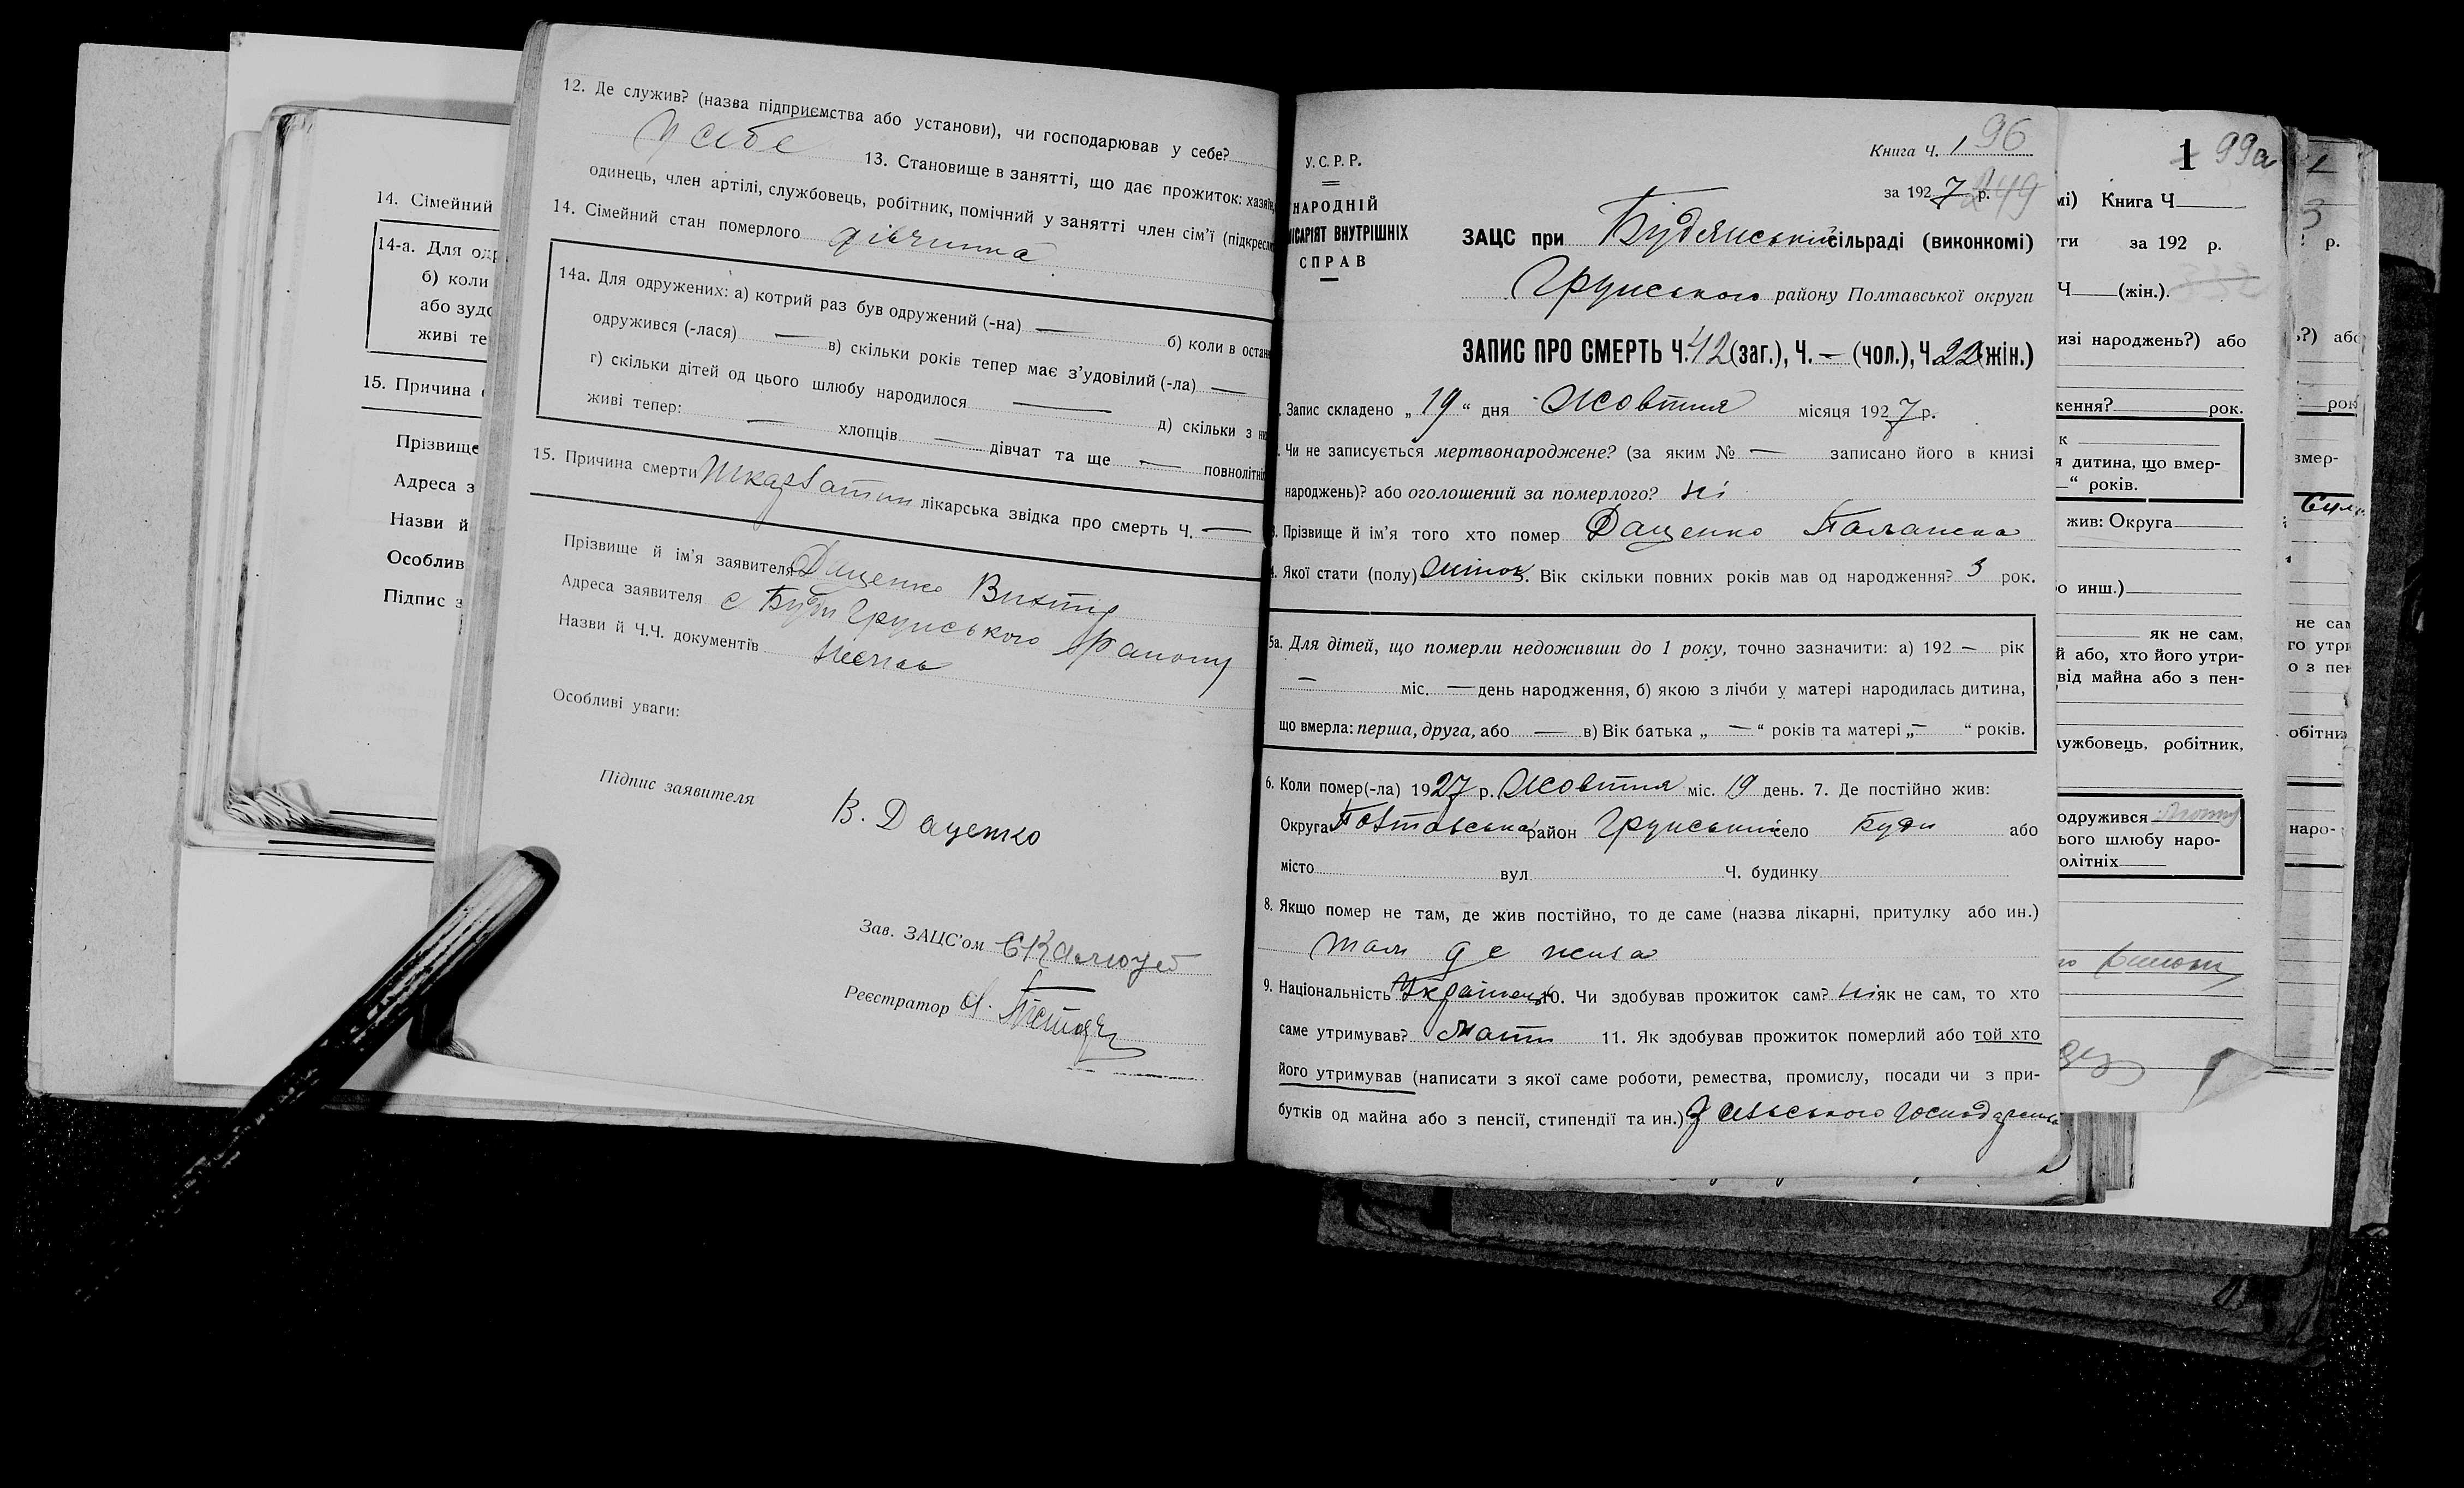 14. Сімейний
14-а. Для од
б) коли
або зудо
живі те
15. Причина
Прізвище
Адреса з
Назви й
Особлив
Підпис з
12. Де служив? (назва підприємства або установи), чи господарював у себе?
У себе 13. Становище в занятті, що дає прожиток: хазяїн,
одинець, член артілі, службовець, робітник, помічний у занятті член сім'ї (підкресли
14. Сімейний стан померлого дівчина
14а. Для одружених: а) котрий раз був одружений (-на) — б) коли в остан
одружився (-лася) — в) скільки років тепер має з'удовілий (-ла) —
г) скільки дітей од цього шлюбу народилося — д) скільки з ни
живі тепер: — хлопців — дівчат та ще — повнолітні
15. Причина смерти лікарська звідка про смерть Ч. —
Прізвище й ім'я заявителя Даценко Виктір
Адреса заявителя с Буди Грунського району
Назви й Ч.Ч. документів Немає
Особливі уваги:
Підпис заявителя
В. Даценко
Зав. ЗАЦС'ом
Реєстратор
96
Книга Ч. 1
за 1927 р. 249
У.С.Р.Р.
НАРОДНІЙ
МІСАРІЯТ ВНУТРІШНІХ
СПРАВ
ЗАЦС при Будянській сільраді (виконкомі)
Грунського району Полтавської округи
ЗАПИС ПРО СМЕРТЬ Ч. 42 (заг.), Ч. — (чол.), Ч 22 (жін.)
Запис складено „19“ дня Жовтня місяця 1927 р.
Чи не записується мертвонароджене? (за яким № — записано його в книзі
народжень)? або оголошений за померлого? Ні
3. Прізвище й ім'я того хто помер Даценко Палажка
4. Якої стати (полу) жіноч. Вік скільки повних років мав од народження? 3 рок.
5а. Для дітей, що померли недоживши до 1 року, точно зазначити: а) 192 — рік
— міс. — день народження, б) якою з лічби у матері народилась дитина,
що вмерла: перша, друга, або — в) Вік батька „ — “ років та матері „ — “ років.
6. Коли помер(-ла) 1927 р. Жовтня міс. 19 день. 7. Де постійно жив:
Округа Полтавська район Грунський село Буди або
місто вул Ч. будинку
8. Якщо помер не там, де жив постійно, то де саме (назва лікарні, притулку або ин.)
там де жила
9. Національність 10. Чи здобував прожиток сам? ні як не сам, то хто
саме утримував? Мати 11. Як здобував прожиток померлий або той хто
його утримував (написати з якої саме роботи, ремества, промислу, посади чи з при-
бутків од майна або з пенсії, стипендії та ин.) З сільського господарства
1 99а
мі) Книга Ч
уги за 192 р.
Ч (жін.).
изі народжень?) або
ження? рок.
к
я дитина, що вмер-
“ років.
жив: Округа
о инш.)
як не сам,
й або, хто його утри-
від майна або з пен-
лужбовець, робітник,
одружився
ього шлюбу наро-
олітніх
3
р.
ь?) або
рок
вмер-
не сам
го утри
о з пен
обітни
наро-